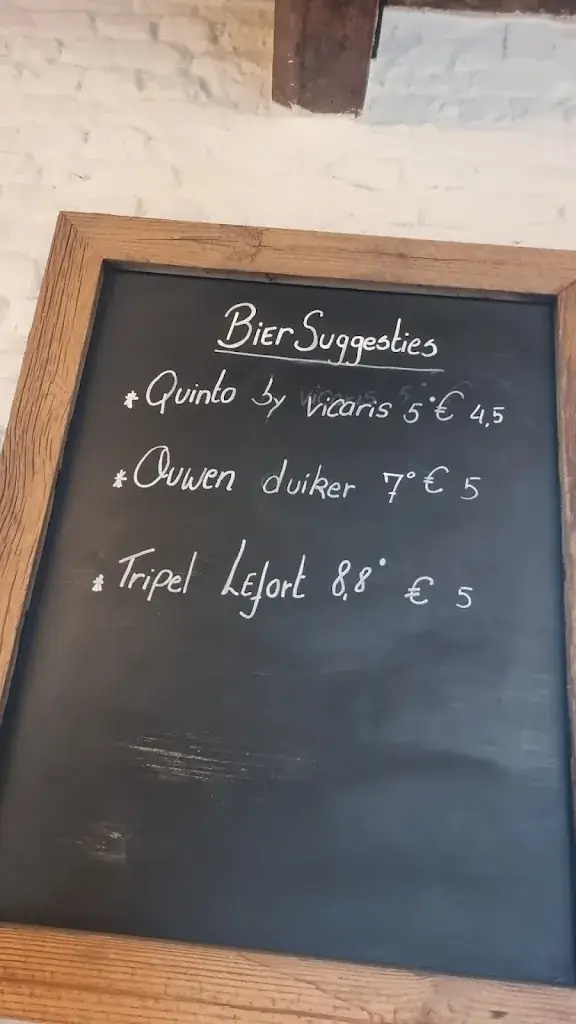 Bier Suggesties
* Quinto by vicaris 5° € 4,5
* Ouwen duiker 7° € 5
* Tripel Lefort 8,8° € 5